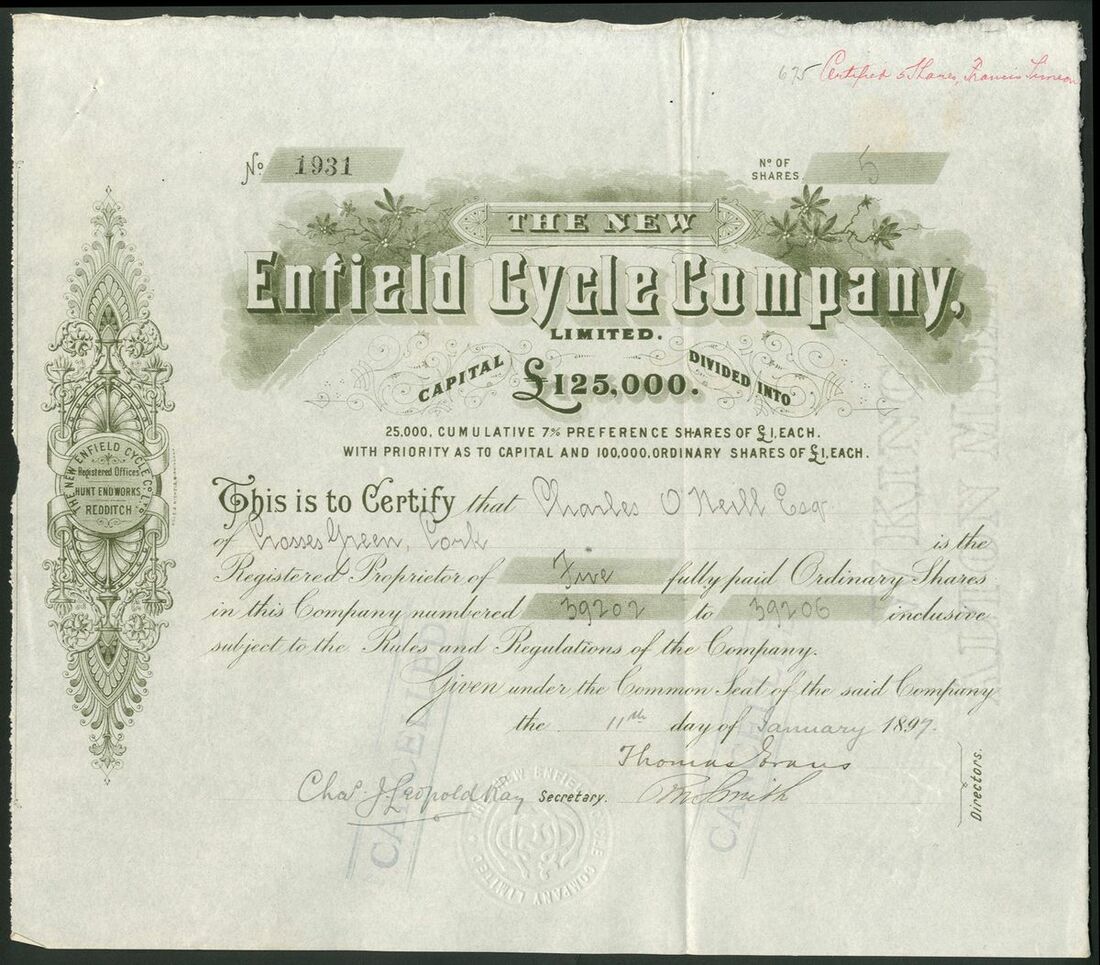 675 Certified 5 Shares, Francis
No 1931
No OF SHARES. 5
THE NEW
Enfield Cycle Company,
LIMITED.
CAPITAL £125,000. DIVIDED INTO
25,000, CUMULATIVE 7% PREFERENCE SHARES OF £1, EACH.
WITH PRIORITY AS TO CAPITAL AND 100,000, ORDINARY SHARES OF £1, EACH.
This is to Certify that Charles O'Neill Esq
of Crosses Green, Cork is the
Registered Proprietor of Five fully paid Ordinary Shares
in this Company numbered 39202 to 39206 inclusive
subject to the Rules and Regulations of the Company.
Given under the Common Seal of the said Company
the 11th day of January 1897.
Thomas Evans
Chas J. Leopold Kay Secretary. Smith
Directors.
THE NEW ENFIELD CYCLE Co. LTD
Registered Offices
HUNT END WORKS,
REDDITCH
CANCELLED
CANCELLED
NEW ENFIELD CYCLE COMPANY LIMITED